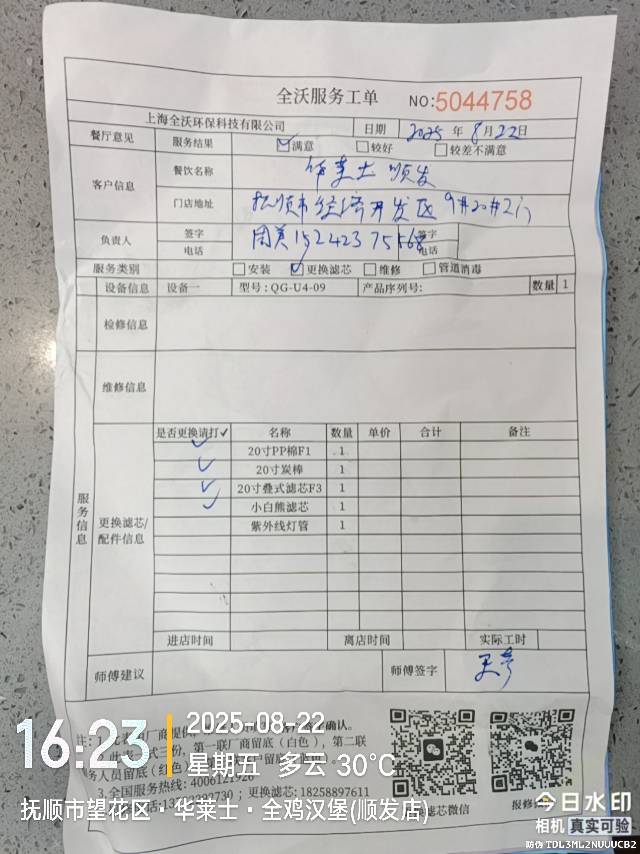 全沃服务工单 NO:5044758
上海全沃环保科技有限公司 日期 2025 年 8 月 22 日
餐厅意见 服务结果 ☑满意 □较好 □较差不满意
客户信息 餐饮名称 华莱士 顺发
门店地址 抚顺市经济开发区 9#20#2门
负责人 签字 签字
电话 电话
服务类别 □安装 ☑更换滤芯 □维修 □管道消毒
设备信息 设备一 型号:QG-U4-09 产品序列号: 数量 1
检修信息
维修信息
服务信息
更换滤芯/配件信息
是否更换请打✓ 名称 数量 单价 合计 备注
✓ 20寸PP棉F1 1
✓ 20寸炭棒 1
✓ 20寸叠式滤芯F3 1
✓ 小白熊滤芯 1
紫外线灯管 1
进店时间 离店时间 实际工时
师傅建议 师傅签字
确认。
一式三份，第一联厂商留底（白色），第二联
务人员留底（红色）
3.全国服务热线: 更换滤芯: 18258897611
16:23 2025-08-22
星期五 多云 30℃
抚顺市望花区·华莱士·全鸡汉堡(顺发店)
今日水印
相机 真实可验
防伪 TDL3ML2NUUUCB2